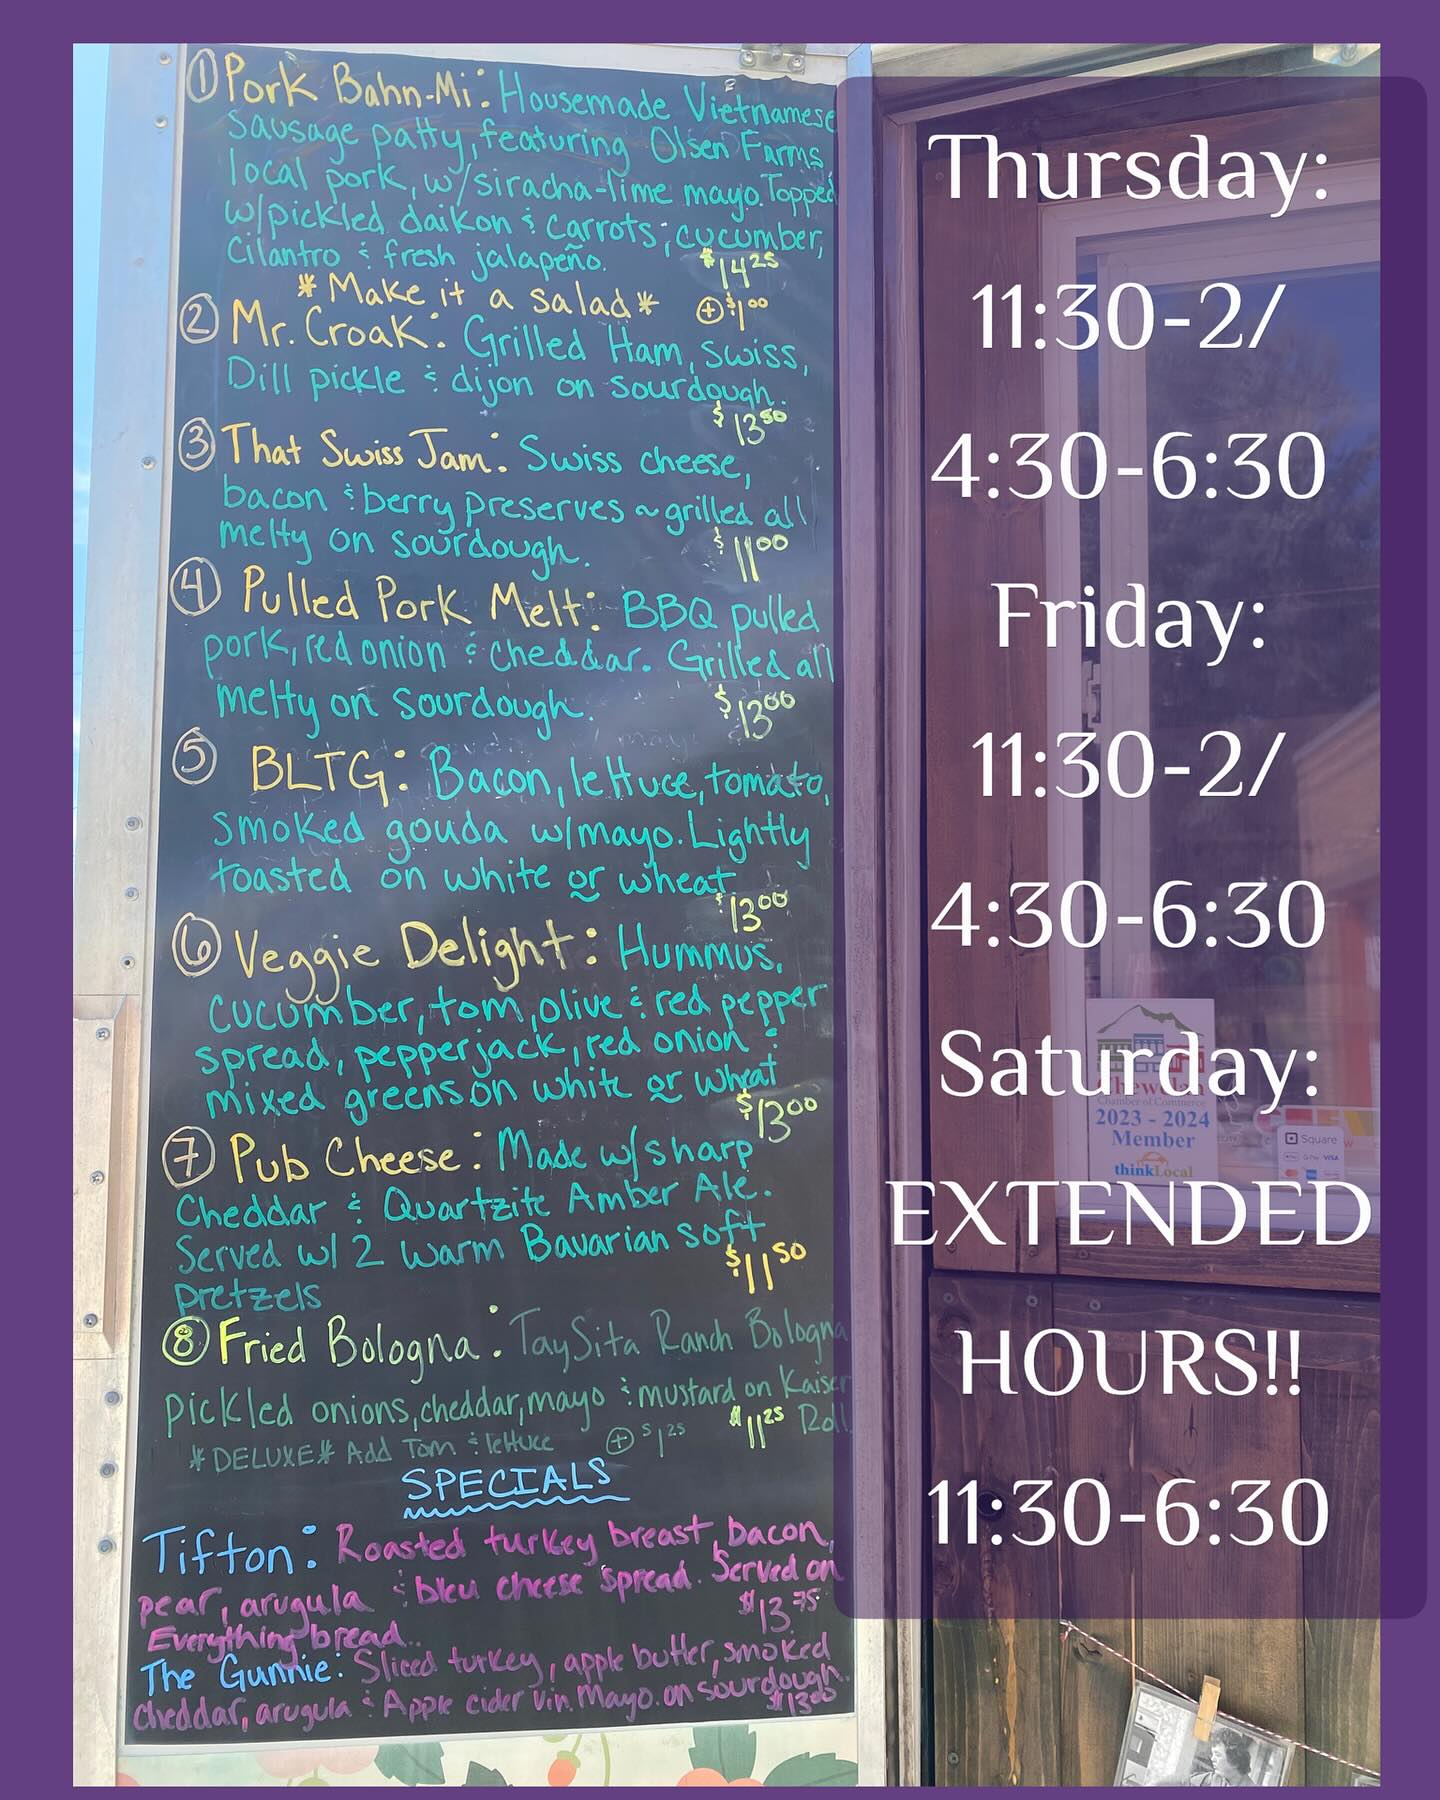 ① Pork Bahn-Mi: Housemade Vietnamese
sausage patty, featuring Olsen Farms
local pork, w/siracha-lime mayo. Topped
w/pickled daikon & carrots; cucumber,
Cilantro & fresh jalapeño. $14.25
*Make it a salad* ⊕ $1.00
② Mr. Croak: Grilled Ham, swiss,
Dill pickle & dijon on sourdough.
$13.50
③ That Swiss Jam: Swiss cheese,
bacon & berry preserves ~ grilled all
melty on sourdough. $11.00
④ Pulled Pork Melt: BBQ pulled
pork, red onion & cheddar. Grilled all
melty on sourdough. $13.00
⑤ BLTG: Bacon, lettuce, tomato,
smoked gouda w/mayo. Lightly
toasted on white or wheat
$13.00
⑥ Veggie Delight: Hummus,
cucumber, tom, olive & red pepper
spread, pepperjack, red onion &
mixed greens on white or wheat
$13.00
⑦ Pub Cheese: Made w/sharp
Cheddar & Quartzite Amber Ale.
Served w/ 2 warm Bavarian soft
pretzels $11.50
⑧ Fried Bologna: TaySita Ranch Bologna
pickled onions, cheddar, mayo & mustard on Kaiser
Roll $11.25
*DELUXE* Add Tom & lettuce ⊕ $1.25
SPECIALS
Tifton: Roasted turkey breast, bacon,
pear, arugula & bleu cheese spread. Served on
Everything bread. $13.75
The Gunnie: Sliced turkey, apple butter, smoked
cheddar, arugula & Apple cider vin. Mayo. on sourdough.
$13.00
Thursday:
11:30-2/
4:30-6:30
Friday:
11:30-2/
4:30-6:30
Saturday:
EXTENDED
HOURS!!
11:30-6:30
Chewelah
Chamber of Commerce
2023 - 2024
Member
thinkLocal
Square
Pay G Pay VISA